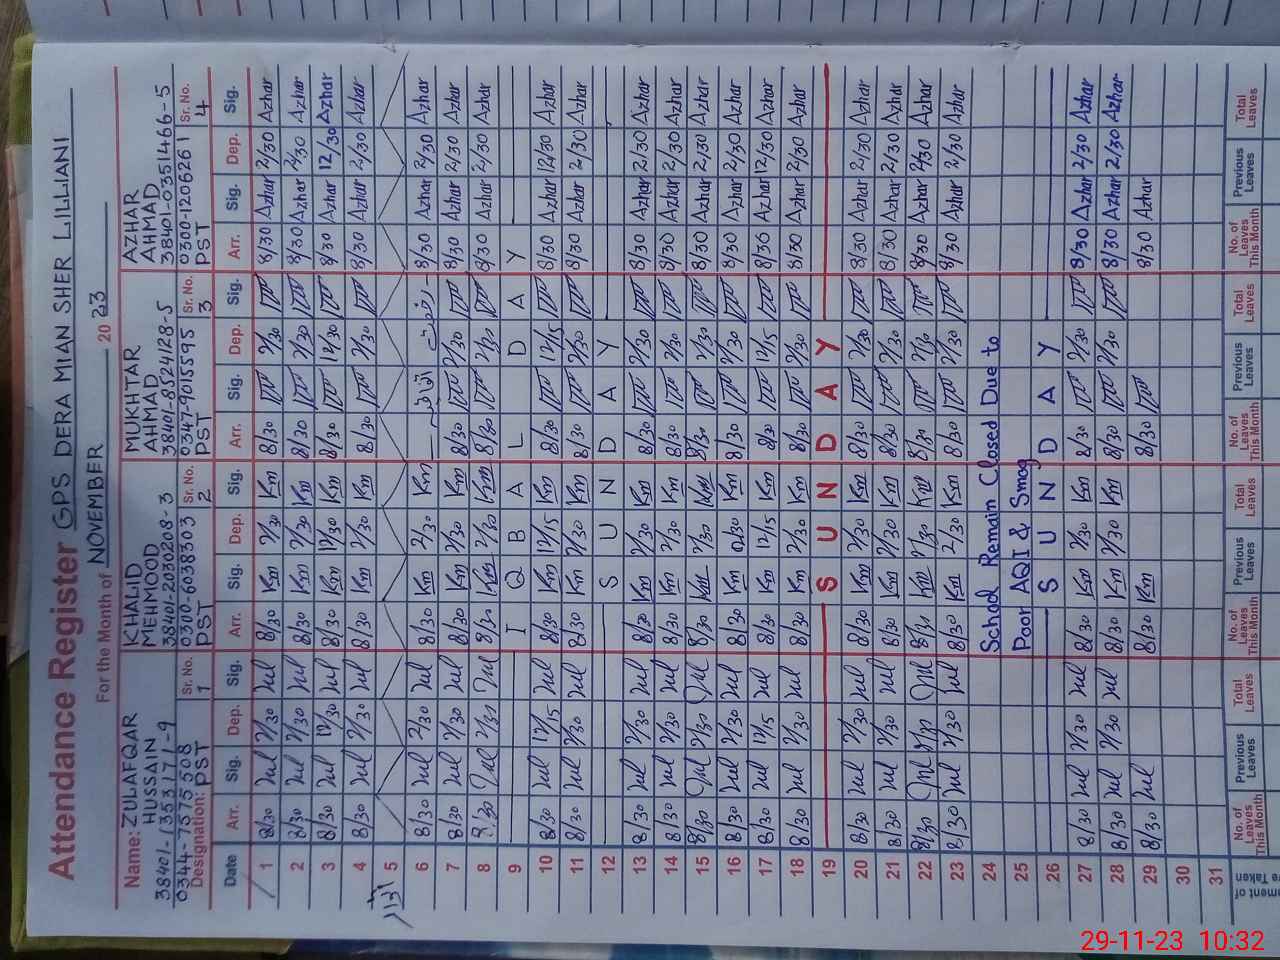 Attendance Register GPS DERA MIAN SHER LILLIANI
For the Month of NOVEMBER 20 23
Name: ZULAFQAR HUSSAIN KHALID MEHMOOD MUKHTAR AHMAD AZHAR AHMAD
38401-1353171-9 38401-2030208-3 38401-8524128-5 38401-0351466-5
0344-7575508 0300-6038303 0347-9015595 0300-1206261
Designation: PST Sr. No. 1 PST Sr. No. 2 PST Sr. No. 3 PST Sr. No. 4
Date Arr. Sig. Dep. Sig. Arr. Sig. Dep. Sig. Arr. Sig. Dep. Sig. Arr. Sig. Dep. Sig.
1 8/30 Zul 2/30 Zul 8/30 Km 2/30 Km 8/30 2/30 8/30 Azhar 2/30 Azhar
2 8/30 Zul 2/30 Zul 8/30 Km 2/30 Km 8/30 2/30 8/30 Azhar 2/30 Azhar
3 8/30 Zul 12/30 Zul 8/30 Km 12/30 Km 8/30 12/30 8/30 Azhar 12/30 Azhar
4 8/30 Zul 2/30 Zul 8/30 Km 2/30 Km 8/30 2/30 8/30 Azhar 2/30 Azhar
5 اتوار
6 8/30 Zul 2/30 Zul 8/30 Km 2/30 Km 8/30 Azhar 2/30 Azhar
7 8/30 Zul 2/30 Zul 8/30 Km 2/30 Km 8/30 2/30 8/30 Azhar 2/30 Azhar
8 8/30 Zul 2/30 Zul 8/30 Km 2/30 Km 8/30 2/30 8/30 Azhar 2/30 Azhar
9 I Q B A L D A Y
10 8/30 Zul 12/15 Zul 8/30 Km 12/15 Km 8/30 12/15 8/30 Azhar 12/30 Azhar
11 8/30 Zul 2/30 Zul 8/30 Km 2/30 Km 8/30 2/30 8/30 Azhar 2/30 Azhar
12 S U N D A Y
13 8/30 Zul 2/30 Zul 8/30 Km 2/30 Km 8/30 2/30 8/30 Azhar 2/30 Azhar
14 8/30 Zul 2/30 Zul 8/30 Km 2/30 Km 8/30 2/30 8/30 Azhar 2/30 Azhar
15 8/30 Zul 2/30 Zul 8/30 Km 2/30 Km 8/30 2/30 8/30 Azhar 2/30 Azhar
16 8/30 Zul 2/30 Zul 8/30 Km 2/30 Km 8/30 2/30 8/30 Azhar 2/30 Azhar
17 8/30 Zul 12/15 Zul 8/30 Km 12/15 Km 8/30 12/15 8/30 Azhar 12/30 Azhar
18 8/30 Zul 2/30 Zul 8/30 Km 2/30 Km 8/30 2/30 8/30 Azhar 2/30 Azhar
19 S U N D A Y
20 8/30 Zul 2/30 Zul 8/30 Km 2/30 Km 8/30 2/30 8/30 Azhar 2/30 Azhar
21 8/30 Zul 2/30 Zul 8/30 Km 2/30 Km 8/30 2/30 8/30 Azhar 2/30 Azhar
22 8/30 Zul 2/30 Zul 8/30 Km 2/30 Km 8/30 2/30 8/30 Azhar 2/30 Azhar
23 8/30 Zul 2/30 Zul 8/30 Km 2/30 Km 8/30 2/30 8/30 Azhar 2/30 Azhar
24 School Remain Closed Due to
25 Poor AQI & Smog
26 S U N D A Y
27 8/30 Zul 2/30 Zul 8/30 Km 2/30 Km 8/30 2/30 8/30 Azhar 2/30 Azhar
28 8/30 Zul 2/30 Zul 8/30 Km 2/30 Km 8/30 2/30 8/30 Azhar 2/30 Azhar
29 8/30 Zul 8/30 Km 8/30 8/30 Azhar
30
31
No. of Leaves This Month Previous Leaves Total Leaves No. of Leaves This Month Previous Leaves Total Leaves No. of Leaves This Month Previous Leaves Total Leaves No. of Leaves This Month Previous Leaves Total Leaves
29-11-23 10:32